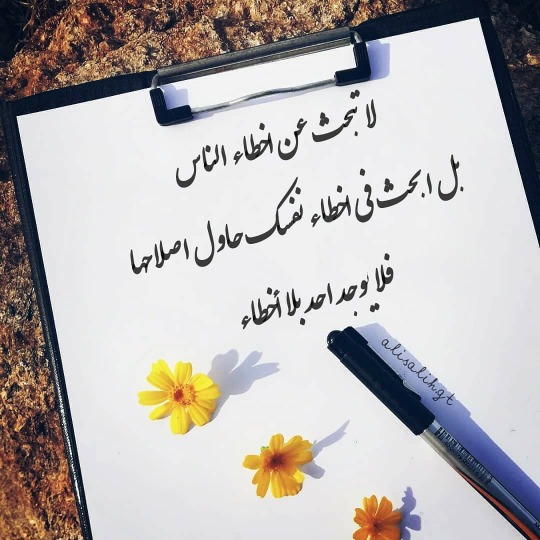 لا تبحث عن اخطاء الناس
بل ابحث في اخطاء نفسك حاول اصلاحها
فلا يوجد احد بلا أخطاء
alisalih.gt